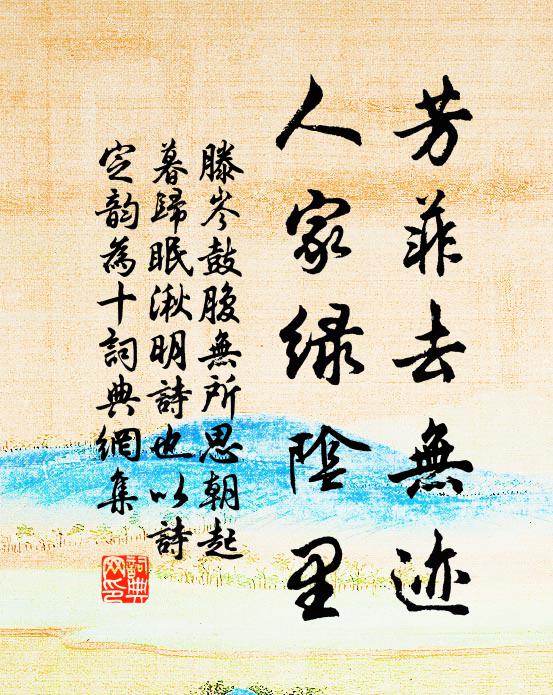 芳菲去無迹
人家緑陰里
滕岑鼓腹無所思朝起
暮歸眠淵明詩也以詩
定韵為十詞典網集
詞典
网印